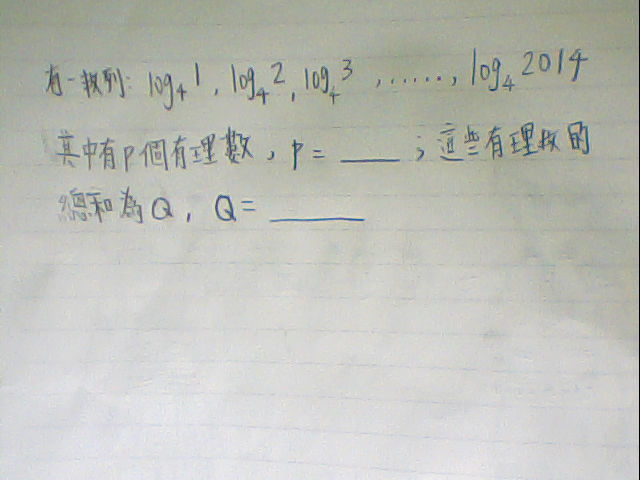 有一数列: log₄1, log₄2, log₄3, ......, log₄2014
其中有P個有理數, P = ____ ; 這些有理数的
總和為Q, Q = ______